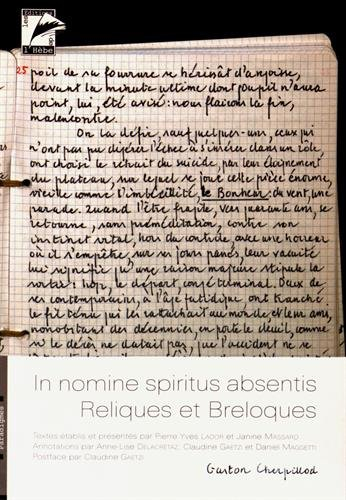 les éditions
de
l'Hèbe
25 poil de sa fourrure se hérissât d'angoisse,
devant la minute ultime dont pourtant il n'aura
point, lui, été avisé : nous flairons la fin,
malencontre.
On la défie, sauf quelques-uns, ceux qui
n'ont pas pu digérer l'échec à s'insérer dans un rôle
ont choisi le retrait du suicide, par leur éloignement
du plateau, sur lequel se joue cette pièce énorme,
vieille comme l'imbécillité, le Bonheur : du vent, une
parade. Quand l'être fragile, vers quarante ans, se
retourne, sans préméditation, contre son
instinct vital, hors du contrôle, avec une horreur
où il s'empêtre, sur ses jours passés, leur vacuité
lui signifie qu'une raison majeure stipule la
sortie : hop, le départ, congé terminal. Deux de
ses contemporains, à l'âge fatidique ont tranché
le fil ténu qui les rattachait au monde, et leur ami,
nonobstant des décennies, en porte le deuil, comme
si le décès ne datait pas, que l'accident ne se
In nomine spiritus absentis
Reliques et Breloques
Textes établis et présentés par Pierre Yves Lador et Janine Massard
Annotations par Anne-Lise Delacrétaz, Claudine Gaetzi et Daniel Maggetti
Postface par Claudine Gaetzi
Gaston Cherpillod
Paradigmes